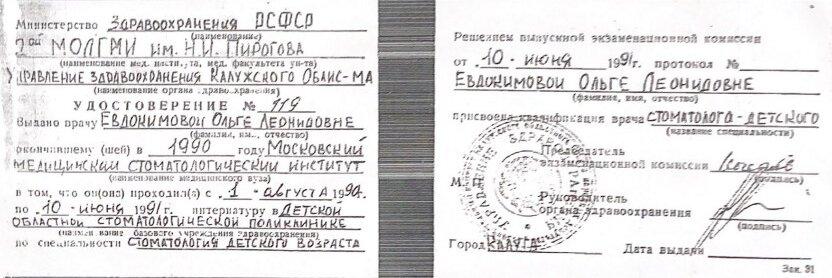 Министерство ЗДРАВООХРАНЕНИЯ РСФСР
(наименование)
2ой МОЛГМИ им. Н.И. Пирогова
(наименование мед. института, мед. факультета ун-та)
УПРАВЛЕНИЕ ЗДРАВООХРАНЕНИЯ КАЛУЖСКОГО ОБЛИС-МА
(наименование органа здравоохранения)
УДОСТОВЕРЕНИЕ № 119
Выдано врачу ЕВДОКИМОВОЙ ОЛЬГЕ ЛЕОНИДОВНЕ
(фамилия, имя, отчество)
окончившему (шей) в 1990 году МОСКОВСКИЙ
МЕДИЦИНСКИЙ СТОМАТОЛОГИЧЕСКИЙ ИНСТИТУТ
(наименование медицинского вуза)
в том, что он(она) проходил(а) с 1 - АВГУСТА 1990г.
по 10 - ИЮНЯ 1991г. интернатуру в ДЕТСКОЙ
ОБЛАСТНОЙ СТОМАТОЛОГИЧЕСКОЙ ПОЛИКЛИНИКЕ
(наименование базового учреждения здравоохранения)
по специальности СТОМАТОЛОГИЯ ДЕТСКОГО ВОЗРАСТА
Решением выпускной экзаменационной комиссии
от 10 - ИЮНЯ 1991г. протокол №
ЕВДОКИМОВОЙ ОЛЬГЕ ЛЕОНИДОВНЕ
(фамилия, имя, отчество)
присвоена квалификация врача СТОМАТОЛОГА-ДЕТСКОГО
(название специальности)
Председатель
экзаменационной комиссии
(подпись)
М. П.
Руководитель
органа здравоохранения
(подпись)
Город КАЛУГА Дата выдачи
Зак. 31